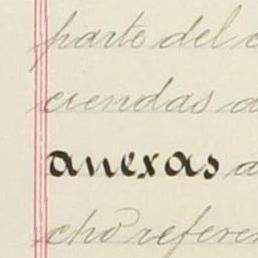 parte del
ciendas
anexas a
cho refere